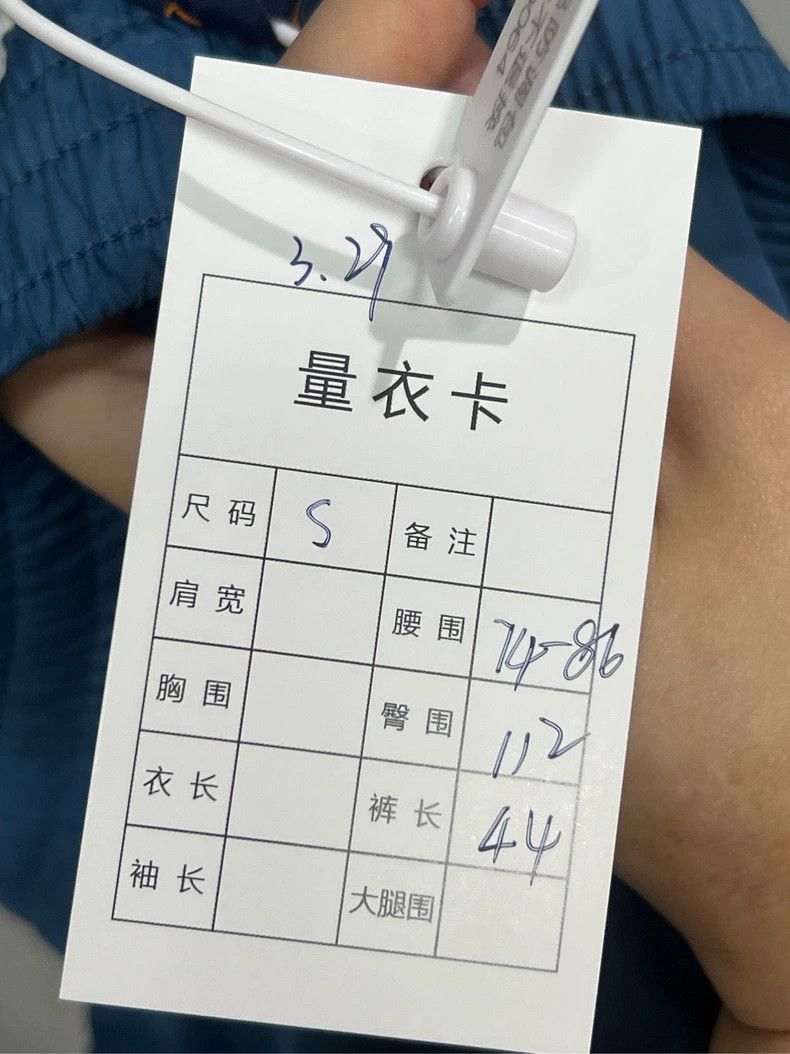 不退换
3.29
量衣卡
尺码 S 备注
肩宽 腰围 74-86
胸围 臀围 112
衣长 裤长 44
袖长 大腿围